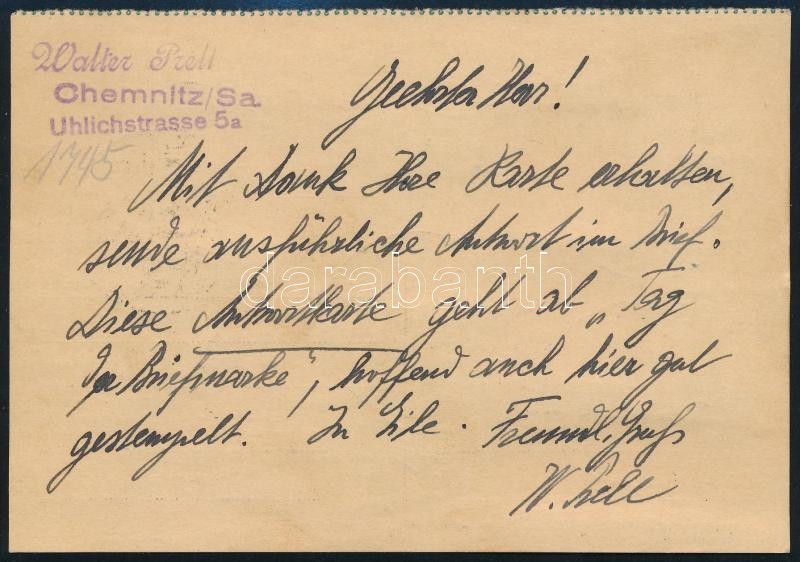 Walter Prell
Chemnitz/Sa.
Uhlichstrasse 5a
1745
Geehrter Herr!
Mit Dank Ihre Karte erhalten,
sende ausführliche Antwort im Brief.
darabanth
Diese Antwortkarte geht ab „Tag
der Briefmarke", hoffend auch hier gut
gestempelt. In Eile. Freundl. Gruß
W. Prell